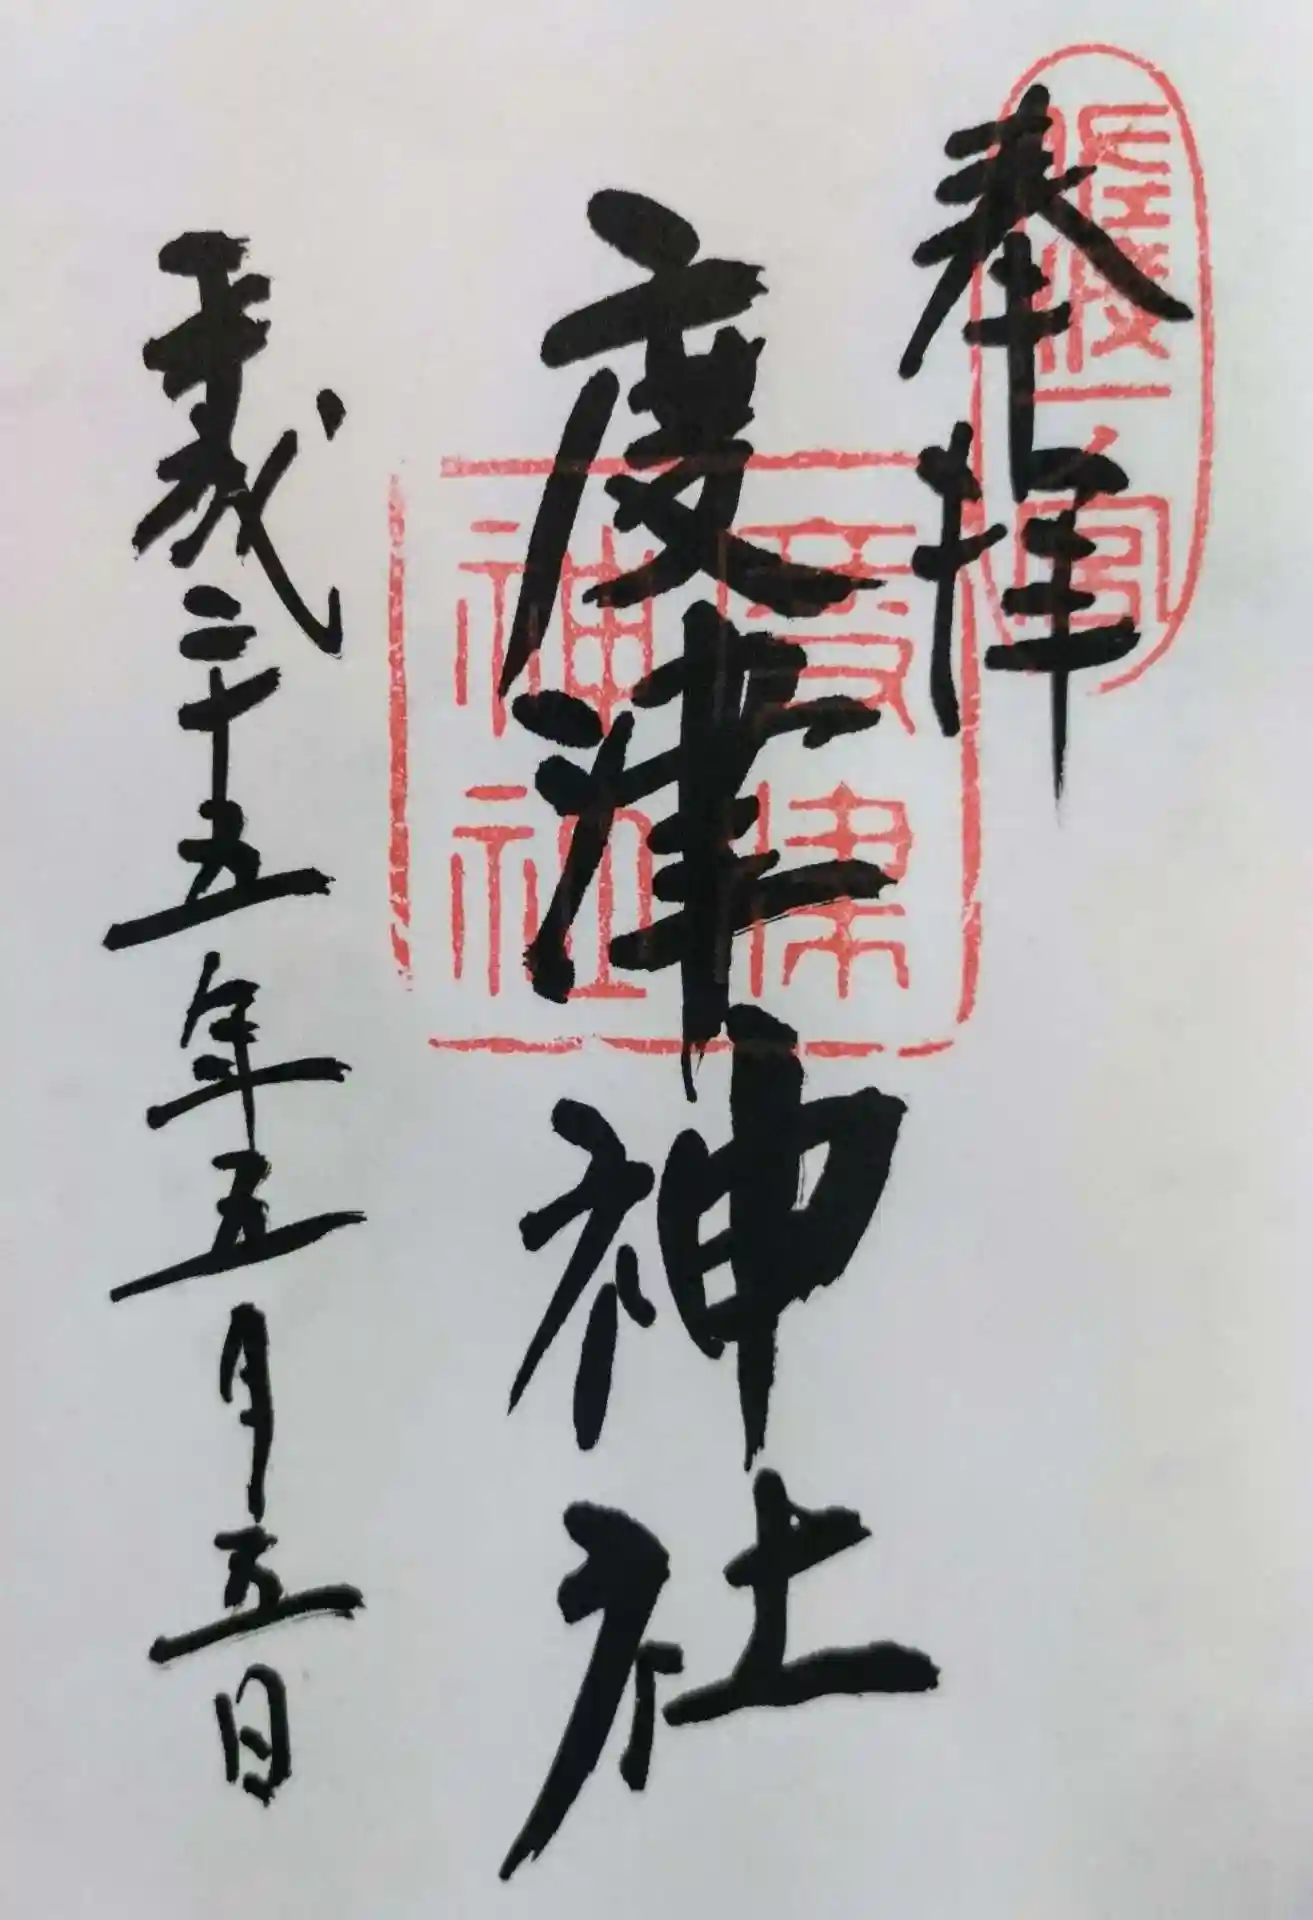 奉拝
佐渡一宮
度津神社
度津神社
平成二十五年五月五日